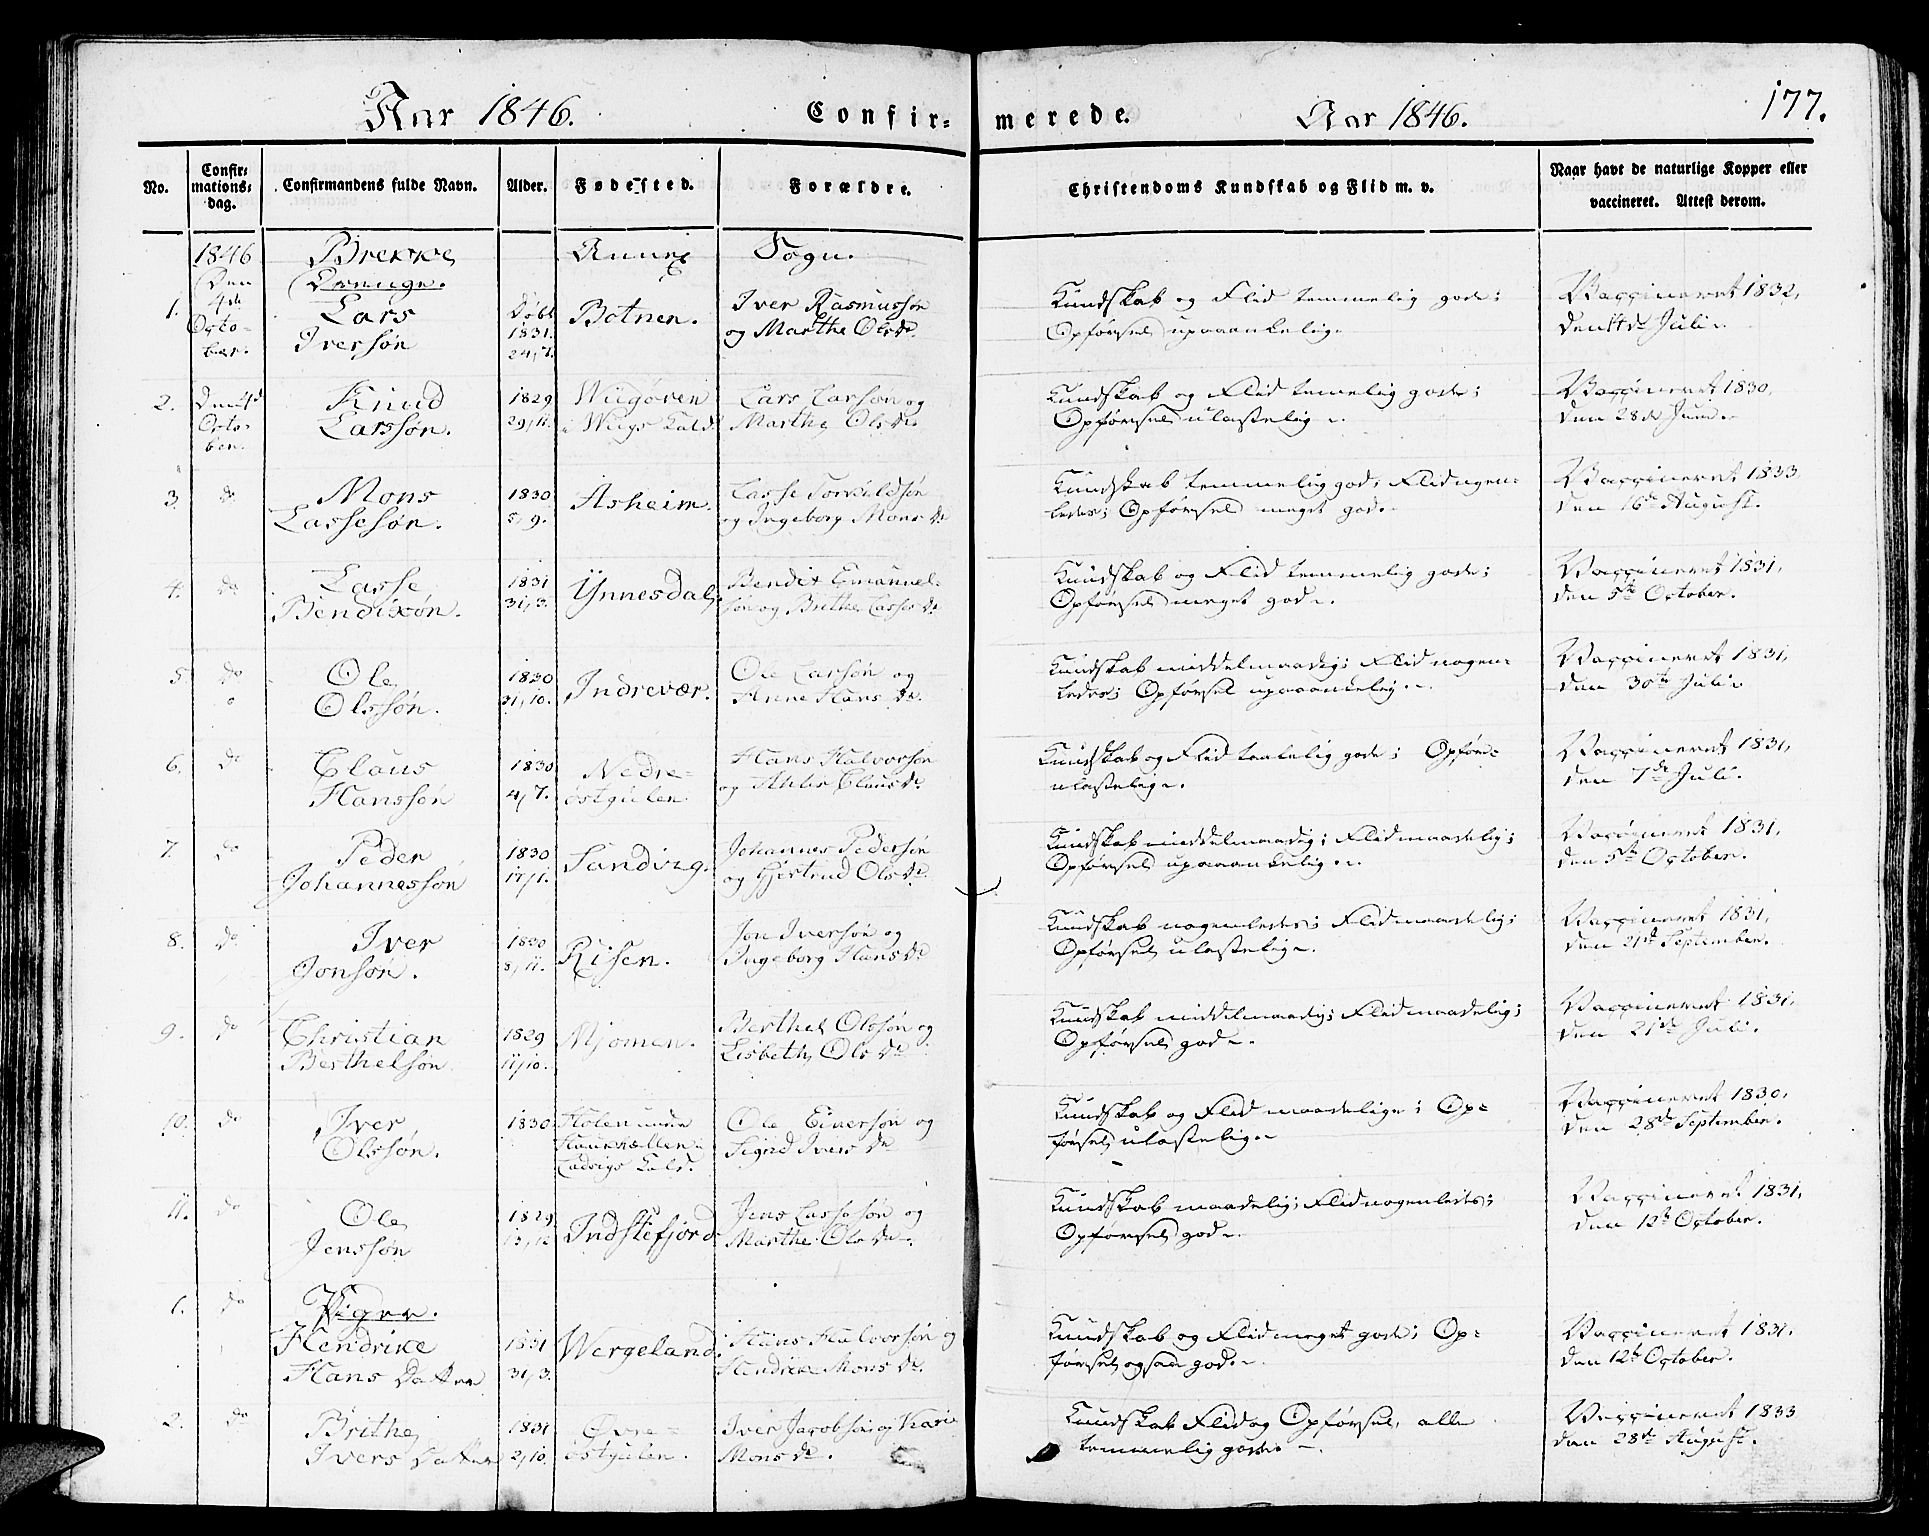 Aar 1846. Confir- merede. Aar 1846. 177.
No. Confirmationsdag. Confirmandens fulde Navn. Alder. Fødested. Forældre. Christendoms Kundskab og Flid m. v. Naar havt de naturlige Kopper eller vaccineret. Attest derom.
1846 Brekke Annex Sogn.
Den Drenge.
1. 4de Octo- Lars Døbt Botnen. Iver Rasmussøn Kundskab og Flid temmelig gode; Vaccineret 1832,
ber. Iversøn 1831. 24/7. og Marthe Olsdr. Opførsel upaaankelig. den Juli.
2. Den 4d Knud 1829 Lars Larsøn og Kundskab og Flid temelig gode; Vaccineret 1830,
Octo- ber. Larssøn. Marthe Olsdr. Opførsel ulastelig. den 28de Juni.
3. do Mons 1830 Asheim. Lasse Torkildsøn Kundskab temmelig god; Flid nogen- Vaccineret 1833
Lassesøn. 5/9. og Ingeborg Monsdr ledes; Opførsel meget god. den 16de August.
4. do Lasse 1831 Ynnesdal. Bendix Emanuel- Kundskab og Flid temmelig gode; Vaccineret 1831,
Bendixøn. 31/3. søn og Brithe Lassedr Opførsel meget god. den 5te October.
5 do Ole 1830 Indrevær. Ole Larsøn og Kundskab middelmaadig; Flid nogen- Vaccineret 1831,
Olssøn. 31/10. Anne Hansdr. ledes; Opførsel upaaankelig. den 30te Juli.
6. do Claus 1830 Nedre- Hans Halvorsøn Kundskab og Flid taalelig gode; Opfør- Vaccineret 1831,
Hanssøn 4/7. østgulen. og Ahlis Clausdr. ulastelig. den 7de Juli.
7. do Peder 1830 Sandvig. Johannes Pedersøn Kundskab middelmaadig; Flid maadelig; Vaccineret 1831,
Johannessøn 17/1. og Gjertrud Olsdr. Opførsel upaaankelig. den 5te October.
8. do Iver 1830 Risen. Jon Iversøn og Kundskab nogenledes; Flid maadelig; Vaccineret 1831,
Jonsøn. 8/11. Ingeborg Hansdr Opførsel ulastelig. den 21de September.
9. do Christian 1829 Mjømen. Berthel Olssøn og Kundskab middelmaadig; Flid maadelig; Vaccineret 1831,
Berthelsøn. 11/10. Lisbeth Olsdr Opførsel god. den 21de Juli.
10. do Iver 1830 Holen under Ole Einersøn og Kundskab og Flid maadelige; Op- Vaccineret 1830,
Olssøn. Ladvigs Kald. Sigrid Iversdr førsel ulastelig. den 28de September.
11. do Ole 1829 Indstefjord. Jens Lassesøn og Kundskab maadelig; Flid nogenledes; Vaccineret 1831,
Jenssøn Marthe Olsdr. Opførsel god. den 12te October.
1. do Piger.
Hendrike 1831 Wergeland. Hans Halvorsøn og Kundskab og Flid meget gode; Op- Vaccineret 1831.
Hans Datter 31/3. Hendrike Monsdr. førsel ogsaa god. den 12te October.
2. do Brithe 1831 Øvre- Iver Jacobsøn og Kari Kundskab Flid og Opførsel, alle Vaccineret 1833
Ivers Datter 2/10. østgulen. Monsdr. temmelig gode. den 28de August.